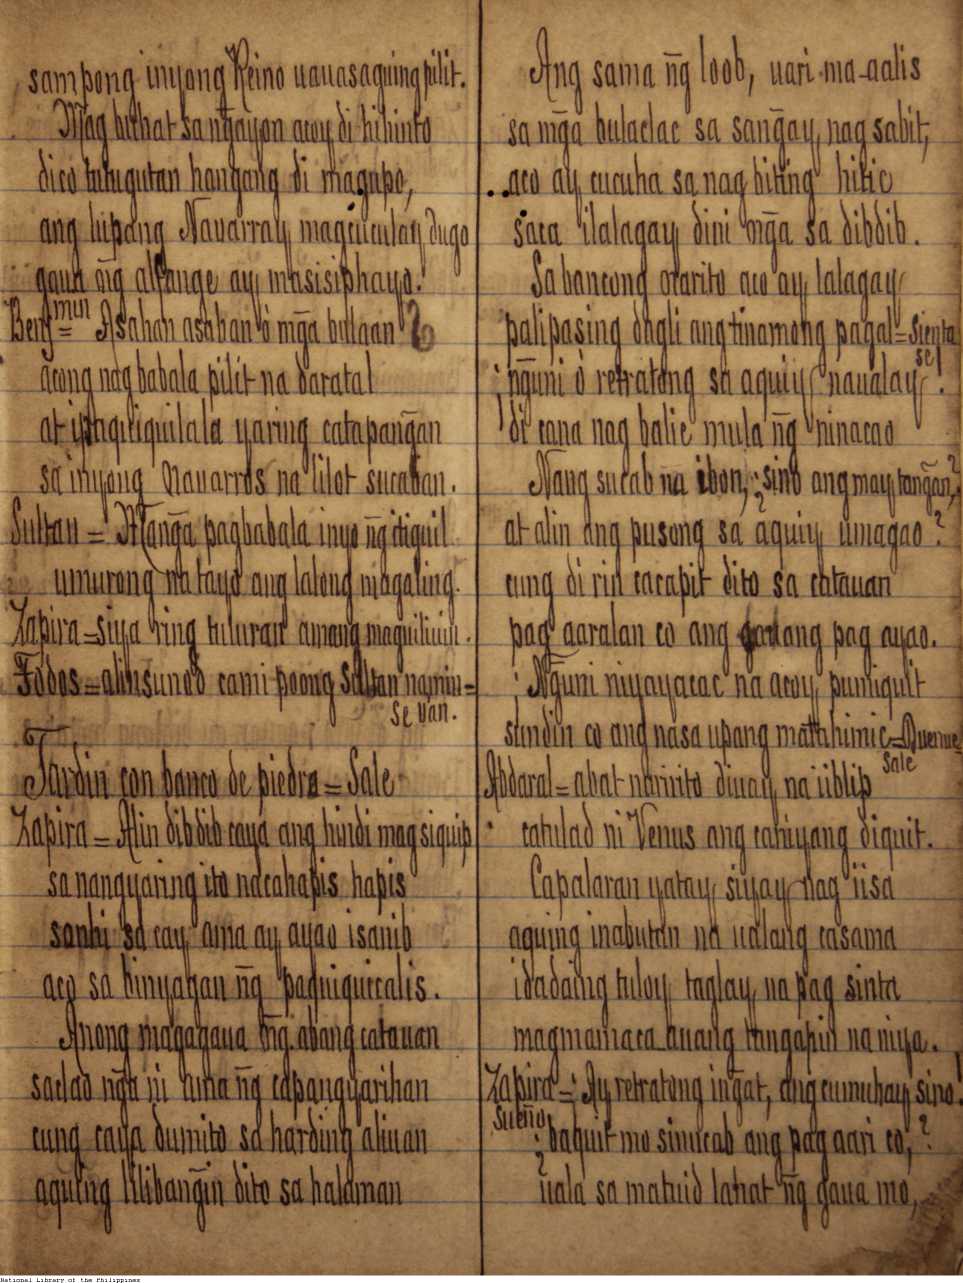 sampong inyong Reino uauasaquing pilit.
Mag buhat sa ngayon acoy di hihinto
dico tutugutan hangang di magupo,
ang lupang Nauarray magcuculay dugo
gaua ñg alfange ay masisiphayo.
Benjmin = Asahan asahan ò mg̃a bulaan
acong nag babala pilit na daratal
at ipagquiquilala yaring catapang̃an
sa inyong Nauarros na lilot sucaban.
Sultan = Mang̃a pagbabala inyo ñg itiguil
umurong na tayo ang lalong magaling.
Zapira = siya ring tuluran amang maguiliuin.
Todos = alinsunod cami poong Sultan namin =
se van.
Jardin con banco de piedra = Sale
Zapira = Alin dibdib caya ang hindi magsiquip
sa nangyaring ito nacahapis hapis
sanhi sa cay ama ay ayao isanib
aco sa binyagan ñg paquiquicalis.
Anong magagaua ñg abang catauan
saclao ng̃a ni ama ñg capangyarihan
cung caya dumito sa harding aliuan
aquing lilibang̃in dito sa halaman
Ang sama ñg loob, uari ma-aalis
sa mg̃a bulaclac sa sang̃ay nag sabit,
aco ay cucuha sa nag biting hitic
saca ilalagay dini mg̃a sa dibdib.
Sa bancong otarito aco ay lalagay
palipasing dagli ang tinamong pagal = sienta
se
¡ n̄guni ò retratong sa aquiy naualay !
di cana nag balic mula n̄g ninacao
Nang sucab na ibon, ¿sino ang may tang̃an,?
¿at alin ang pusong sa aquiy umagao?
cung di rin cacapit dito sa catauan
pag aaralan co ang gauang pag ayao.
¡Ng̃uni niyayacac na acoy pumiquit
sundin co ang nasa upang matahimic = Duerme
Sale
Abdaral = abat naririto diuay na iidlip
catulad ni Venus ang cariyang diquit.
Capalaran yatay siyay nag iisa
aquing inabutan na ualang casama
idadaing tuloy taglay na pag sinta
magmamaca-auang tangapin na niya.
Zapira = ¡Ay retratong ing̃at, ang cumuhay sino!
Sueño
¿baquit mo sinucab ang pag aari co,?
¿uala sa matuid lahat n̄g gaua mo,
National Library of the Philippines